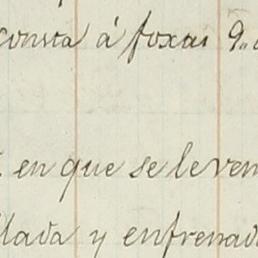 consta á foxas 9..
en que se le ven
llada y enfrenada